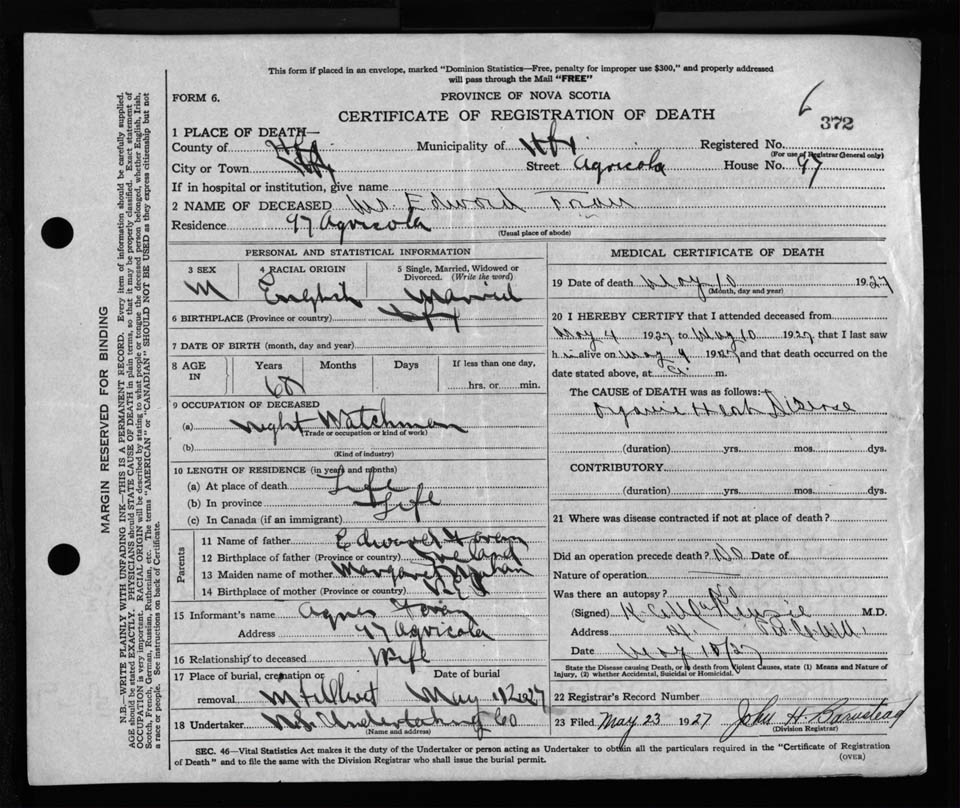 This form if placed in an envelope, marked "Dominion Statistics—Free, penalty for improper use $300," and properly addressed
will pass through the Mail "FREE"
FORM 6.
PROVINCE OF NOVA SCOTIA
CERTIFICATE OF REGISTRATION OF DEATH
6
372
1 PLACE OF DEATH—
County of Hfx Municipality of Hfx Registered No.
(For use of Registrar General only)
City or Town Hfx Street Agricola House No. 97
If in hospital or institution, give name
2 NAME OF DECEASED Mr. Edward Foran
Residence 97 Agricola
(Usual place of abode)
PERSONAL AND STATISTICAL INFORMATION
3 SEX 4 RACIAL ORIGIN 5 Single, Married, Widowed or Divorced. (Write the word)
M English Married
6 BIRTHPLACE (Province or country) Hfx
7 DATE OF BIRTH (month, day and year)
8 AGE IN Years Months Days If less than one day,
60 hrs. or min.
9 OCCUPATION OF DECEASED
(a) Night Watchman
(Trade or occupation or kind of work)
(b)
(Kind of industry)
10 LENGTH OF RESIDENCE (in years and months)
(a) At place of death Life
(b) In province Life
(c) In Canada (if an immigrant)
Parents
11 Name of father Edward Foran
12 Birthplace of father (Province or country) Ireland
13 Maiden name of mother Margaret
14 Birthplace of mother (Province or country)
15 Informant's name Agnes Foran
Address 97 Agricola
16 Relationship to deceased Wife
17 Place of burial, cremation or removal Date of burial
May 12 1927
18 Undertaker N.S. Undertaking Co
(Name and address)
MEDICAL CERTIFICATE OF DEATH
19 Date of death May 10 1927
(Month, day and year)
20 I HEREBY CERTIFY that I attended deceased from
May 4 1927 to May 10 1927 that I last saw
h im alive on May 9 1927 and that death occurred on the
date stated above, at m.
The CAUSE OF DEATH was as follows:
Organic Heart Disease
(duration) yrs. mos. dys.
CONTRIBUTORY
(duration) yrs. mos. dys.
21 Where was disease contracted if not at place of death?
Did an operation precede death? No Date of
Nature of operation
Was there an autopsy? No
(Signed) McKenzie M.D.
Address
Date May 10/27
State the Disease causing Death, or in death from Violent Causes, state (1) Means and Nature of
Injury, (2) whether Accidental, Suicidal or Homicidal.
22 Registrar's Record Number
23 Filed May 23 1927 John H. Barnstead
(Division Registrar)
SEC. 46—Vital Statistics Act makes it the duty of the Undertaker or person acting as Undertaker to obtain all the particulars required in the "Certificate of Registration
of Death" and to file the same with the Division Registrar who shall issue the burial permit.
(OVER)
MARGIN RESERVED FOR BINDING
N.B.—WRITE PLAINLY WITH UNFADING INK—THIS IS A PERMANENT RECORD. Every item of information should be carefully supplied.
AGE should be stated EXACTLY. PHYSICIANS should STATE CAUSE OF DEATH in plain terms, so that it may be properly classified. Exact statement of
OCCUPATION is very important. RACIAL ORIGIN will be described by stating to what people or tongue the deceased person belonged, whether English, Irish,
Scotch, French, German, Russian, Ruthenian, etc. The terms "AMERICAN" or "CANADIAN" SHOULD NOT BE USED as they express citizenship but not
a race or people. See instructions on back of Certificate.